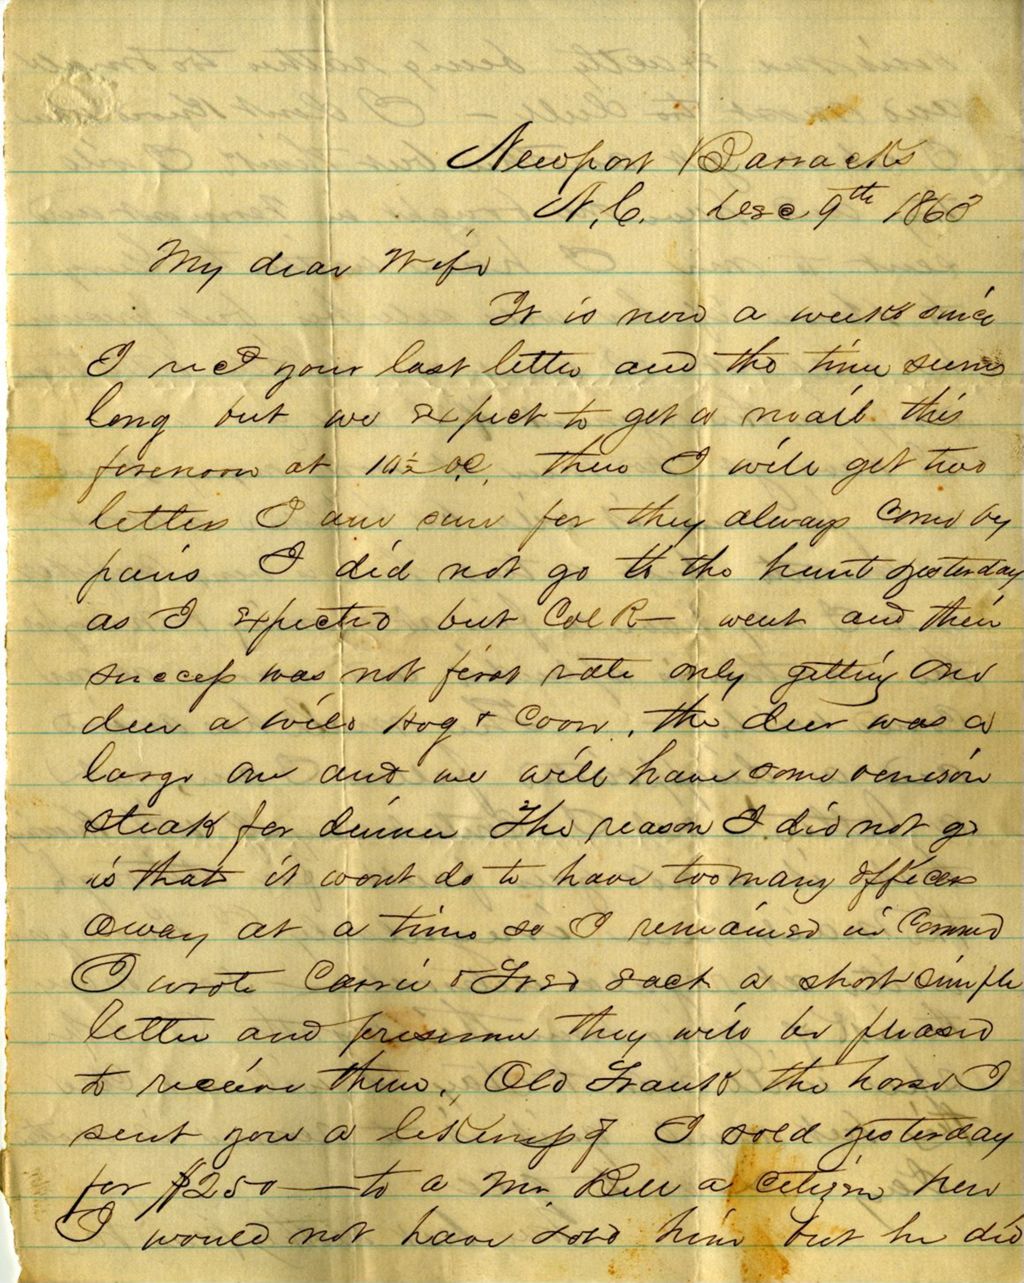 Newport Barracks
N.C. Dec 9th 1863
My dear Wife
It is now a week since
I recd your last letter and the time seems
long but we expect to get a mail this
forenoon at 10½ oc, then I will get two
letters I am sure for they always come by
pairs I did not go to the hunt yesterday
as I expected but Col R— went and their
success was not first rate only getting one
deer a wild Hog & Coon, the deer was a
large one and we will have some venison
steak for dinner The reason I did not go
is that it wont do to have too many officers
away at a time so I remained in Command
I wrote Carrie & Fred each a short simple
letter and presume they will be pleased
to receive them, Old Frank the horse I
sent you a likeness of I sold yesterday
for $250— to a Mr Bell a citizen here
I would not have sold him but he did